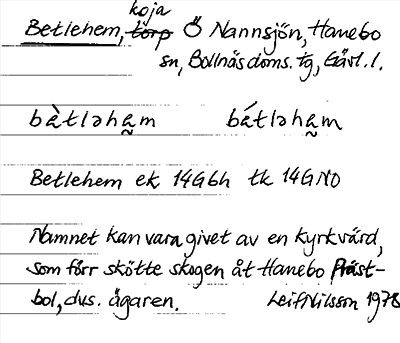 koja
Betlehem, torp Ö Nannsjön, Hanebo
sn, Bollnäs doms. tg, Gävl. l.
bàtləha̰m bátləha̰m
Betlehem ek 14G6h tk 14GNO
Namnet kan vara givet av en kyrkvärd,
som förr skötte skogen åt Hanebo Präst-
bol, dvs. ägaren. Leif Nilsson 1978